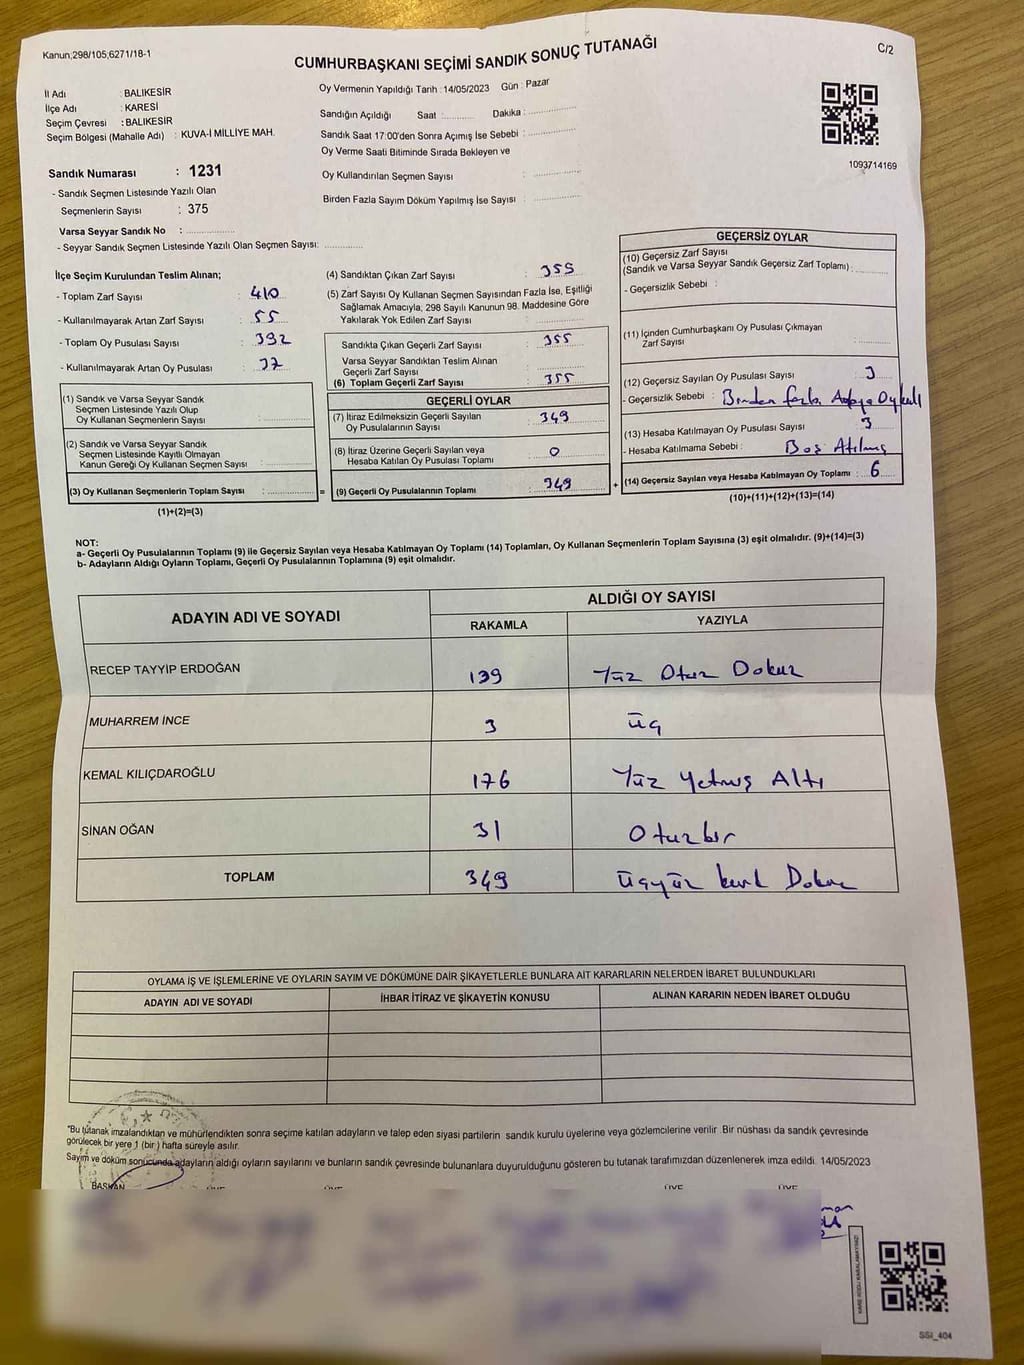 Kanun;298/105;6271/18-1
C/2
CUMHURBAŞKANI SEÇİMİ SANDIK SONUÇ TUTANAĞI
İl Adı : BALIKESİR
İlçe Adı : KARESİ
Seçim Çevresi : BALIKESİR
Seçim Bölgesi (Mahalle Adı) : KUVA-İ MİLLİYE MAH.
Oy Vermenin Yapıldığı Tarih : 14/05/2023 Gün : Pazar
Sandığın Açıldığı Saat : Dakika :
Sandık Saat 17:00'den Sonra Açımış İse Sebebi :
Oy Verme Saati Bitiminde Sırada Bekleyen ve
Oy Kullandırılan Seçmen Sayısı :
Birden Fazla Sayım Döküm Yapılmış İse Sayısı :
1093714169
Sandık Numarası : 1231
- Sandık Seçmen Listesinde Yazılı Olan
Seçmenlerin Sayısı : 375
Varsa Seyyar Sandık No :
- Seyyar Sandık Seçmen Listesinde Yazılı Olan Seçmen Sayısı:
İlçe Seçim Kurulundan Teslim Alınan;
- Toplam Zarf Sayısı : 410
- Kullanılmayarak Artan Zarf Sayısı : 55
- Toplam Oy Pusulası Sayısı : 392
- Kullanılmayarak Artan Oy Pusulası : 37
(1) Sandık ve Varsa Seyyar Sandık
Seçmen Listesinde Yazılı Olup
Oy Kullanan Seçmenlerin Sayısı :
(2) Sandık ve Varsa Seyyar Sandık
Seçmen Listesinde Kayıtlı Olmayan
Kanun Gereği Oy Kullanan Seçmen Sayısı :
(3) Oy Kullanan Seçmenlerin Toplam Sayısı :
(1)+(2)=(3)
(4) Sandıktan Çıkan Zarf Sayısı : 355
(5) Zarf Sayısı Oy Kullanan Seçmen Sayısından Fazla İse, Eşitliği
Sağlamak Amacıyla, 298 Sayılı Kanunun 98. Maddesine Göre
Yakılarak Yok Edilen Zarf Sayısı :
Sandıkta Çıkan Geçerli Zarf Sayısı : 355
Varsa Seyyar Sandıktan Teslim Alınan
Geçerli Zarf Sayısı :
(6) Toplam Geçerli Zarf Sayısı : 355
GEÇERLİ OYLAR
(7) İtiraz Edilmeksizin Geçerli Sayılan
Oy Pusulalarının Sayısı : 349
(8) İtiraz Üzerine Geçerli Sayılan veya
Hesaba Katılan Oy Pusulası Toplamı : 0
= (9) Geçerli Oy Pusulalarının Toplamı : 349 +
GEÇERSİZ OYLAR
(10) Geçersiz Zarf Sayısı
(Sandık ve Varsa Seyyar Sandık Geçersiz Zarf Toplamı) :
- Geçersizlik Sebebi :
(11) İçinden Cumhurbaşkanı Oy Pusulası Çıkmayan
Zarf Sayısı :
(12) Geçersiz Sayılan Oy Pusulası Sayısı : 3
- Geçersizlik Sebebi : Birden fazla Adaya Oy kull
(13) Hesaba Katılmayan Oy Pusulası Sayısı : 3
- Hesaba Katılmama Sebebi : Boş Atılmış
(14) Geçersiz Sayılan veya Hesaba Katılmayan Oy Toplamı : 6
(10)+(11)+(12)+(13)=(14)
NOT:
a- Geçerli Oy Pusulalarının Toplamı (9) ile Geçersiz Sayılan veya Hesaba Katılmayan Oy Toplamı (14) Toplamları, Oy Kullanan Seçmenlerin Toplam Sayısına (3) eşit olmalıdır. (9)+(14)=(3)
b- Adayların Aldığı Oyların Toplamı, Geçerli Oy Pusulalarının Toplamına (9) eşit olmalıdır.
ADAYIN ADI VE SOYADI
ALDIĞI OY SAYISI
RAKAMLA YAZIYLA
RECEP TAYYİP ERDOĞAN 139 Yüz Otuz Dokuz
MUHARREM İNCE 3 üç
KEMAL KILIÇDAROĞLU 176 Yüz Yetmiş Altı
SİNAN OĞAN 31 Otuzbir
TOPLAM 349 üçyüz kırk Dokuz
OYLAMA İŞ VE İŞLEMLERİNE VE OYLARIN SAYIM VE DÖKÜMÜNE DAİR ŞİKAYETLERLE BUNLARA AİT KARARLARIN NELERDEN İBARET BULUNDUKLARI
ADAYIN ADI VE SOYADI İHBAR İTİRAZ VE ŞİKAYETİN KONUSU ALINAN KARARIN NEDEN İBARET OLDUĞU
"Bu tutanak imzalandıktan ve mühürlendikten sonra seçime katılan adayların ve talep eden siyasi partilerin sandık kurulu üyelerine veya gözlemcilerine verilir. Bir nüshası da sandık çevresinde
görülecek bir yere 1 (bir) hafta süreyle asılır.
Sayım ve döküm sonucunda adayların aldığı oyların sayılarını ve bunların sandık çevresinde bulunanlara duyurulduğunu gösteren bu tutanak tarafımızdan düzenlenerek imza edildi. 14/05/2023
BAŞKAN ÜYE ÜYE ÜYE ÜYE
KARE KODU KARALAMAYINIZ!
SSI_404